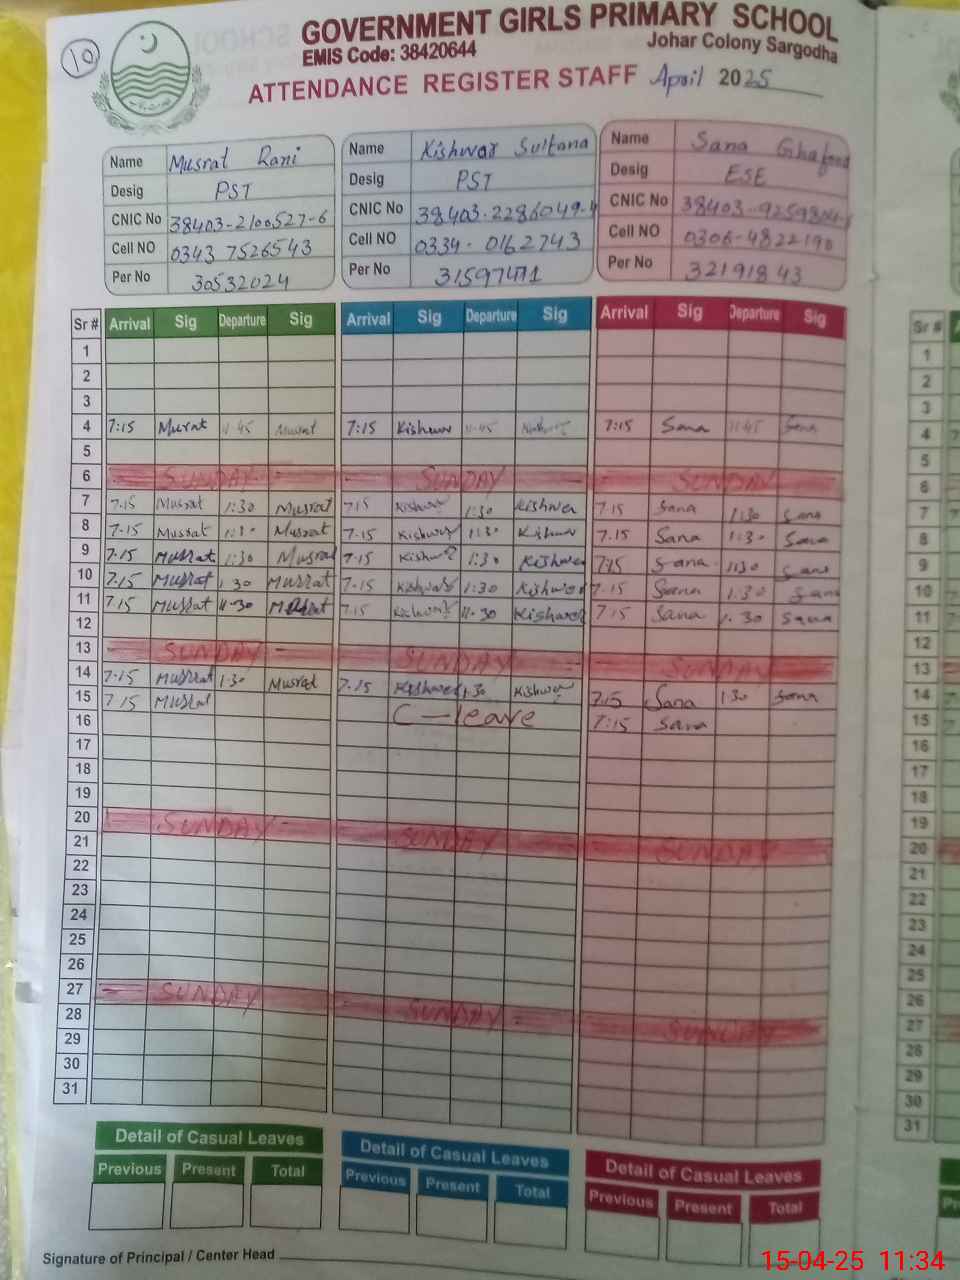 10
GOVERNMENT GIRLS PRIMARY SCHOOL
EMIS Code: 38420644
Johar Colony Sargodha
ATTENDANCE REGISTER STAFF April 2025
Name Musrat Rani
Desig PST
CNIC No 38403-2100527-6
Cell NO 0343 7526543
Per No 30532024
Name Kishwar Sultana
Desig PST
CNIC No 38403-2286049-4
Cell NO 0334-0162743
Per No
Name Sana Ghafoor
Desig ESE
CNIC No
Cell NO 0306-4822190
Per No 32191843
Sr # Arrival Sig Departure Sig Arrival Sig Departure Sig Arrival Sig Departure Sig
1
2
3
4 7:15 Musrat 11-45 Musrat 7:15 Kishwar 11-45 7:15 Sana 11:45 Sana
5
6 SUNDAY SUNDAY SUNDAY
7 7.15 Musrat 1:30 Musrat 7.15 Kishwar 1:30 Kishwer 7.15 Sana 1:30 Sana
8 7-15 Musrat 1:30 Musrat 7-15 Kishwar 1:30 Kishwar 7.15 Sana 1:30 Sana
9 7-15 Musrat 1:30 Musrat 7-15 Kishwar 1:30 Kishwer 7:15 Sana 1:30 Sana
10 7-15 Musrat 1.30 Musrat 7-15 Kishwar 1:30 Kishwer 7.15 Sana 1.30 Sana
11 7.15 Musrat 11-30 Musrat 7.15 Kishwar 11-30 Kishwer 7.15 Sana 11.30 Sana
12
13 SUNDAY SUNDAY SUNDAY
14 7-15 Musrat 1-30 Musrat 7.15 Kishwer 1:30 Kishwer 7.15 Sana 1:30 Sana
15 7.15 Musrat C-leave 7:15 Sana
16
17
18
19
20 SUNDAY SUNDAY SUNDAY
21
22
23
24
25
26
27 SUNDAY SUNDAY SUNDAY
28
29
30
31
Detail of Casual Leaves
Previous Present Total
Detail of Casual Leaves
Previous Present Total
Detail of Casual Leaves
Previous Present Total
Signature of Principal / Center Head
Sr #
1
2
3
4
5
6
7
8
9
10
11
12
13
14
15
16
17
18
19
20
21
22
23
24
25
26
27
28
29
30
31
15-04-25 11:34